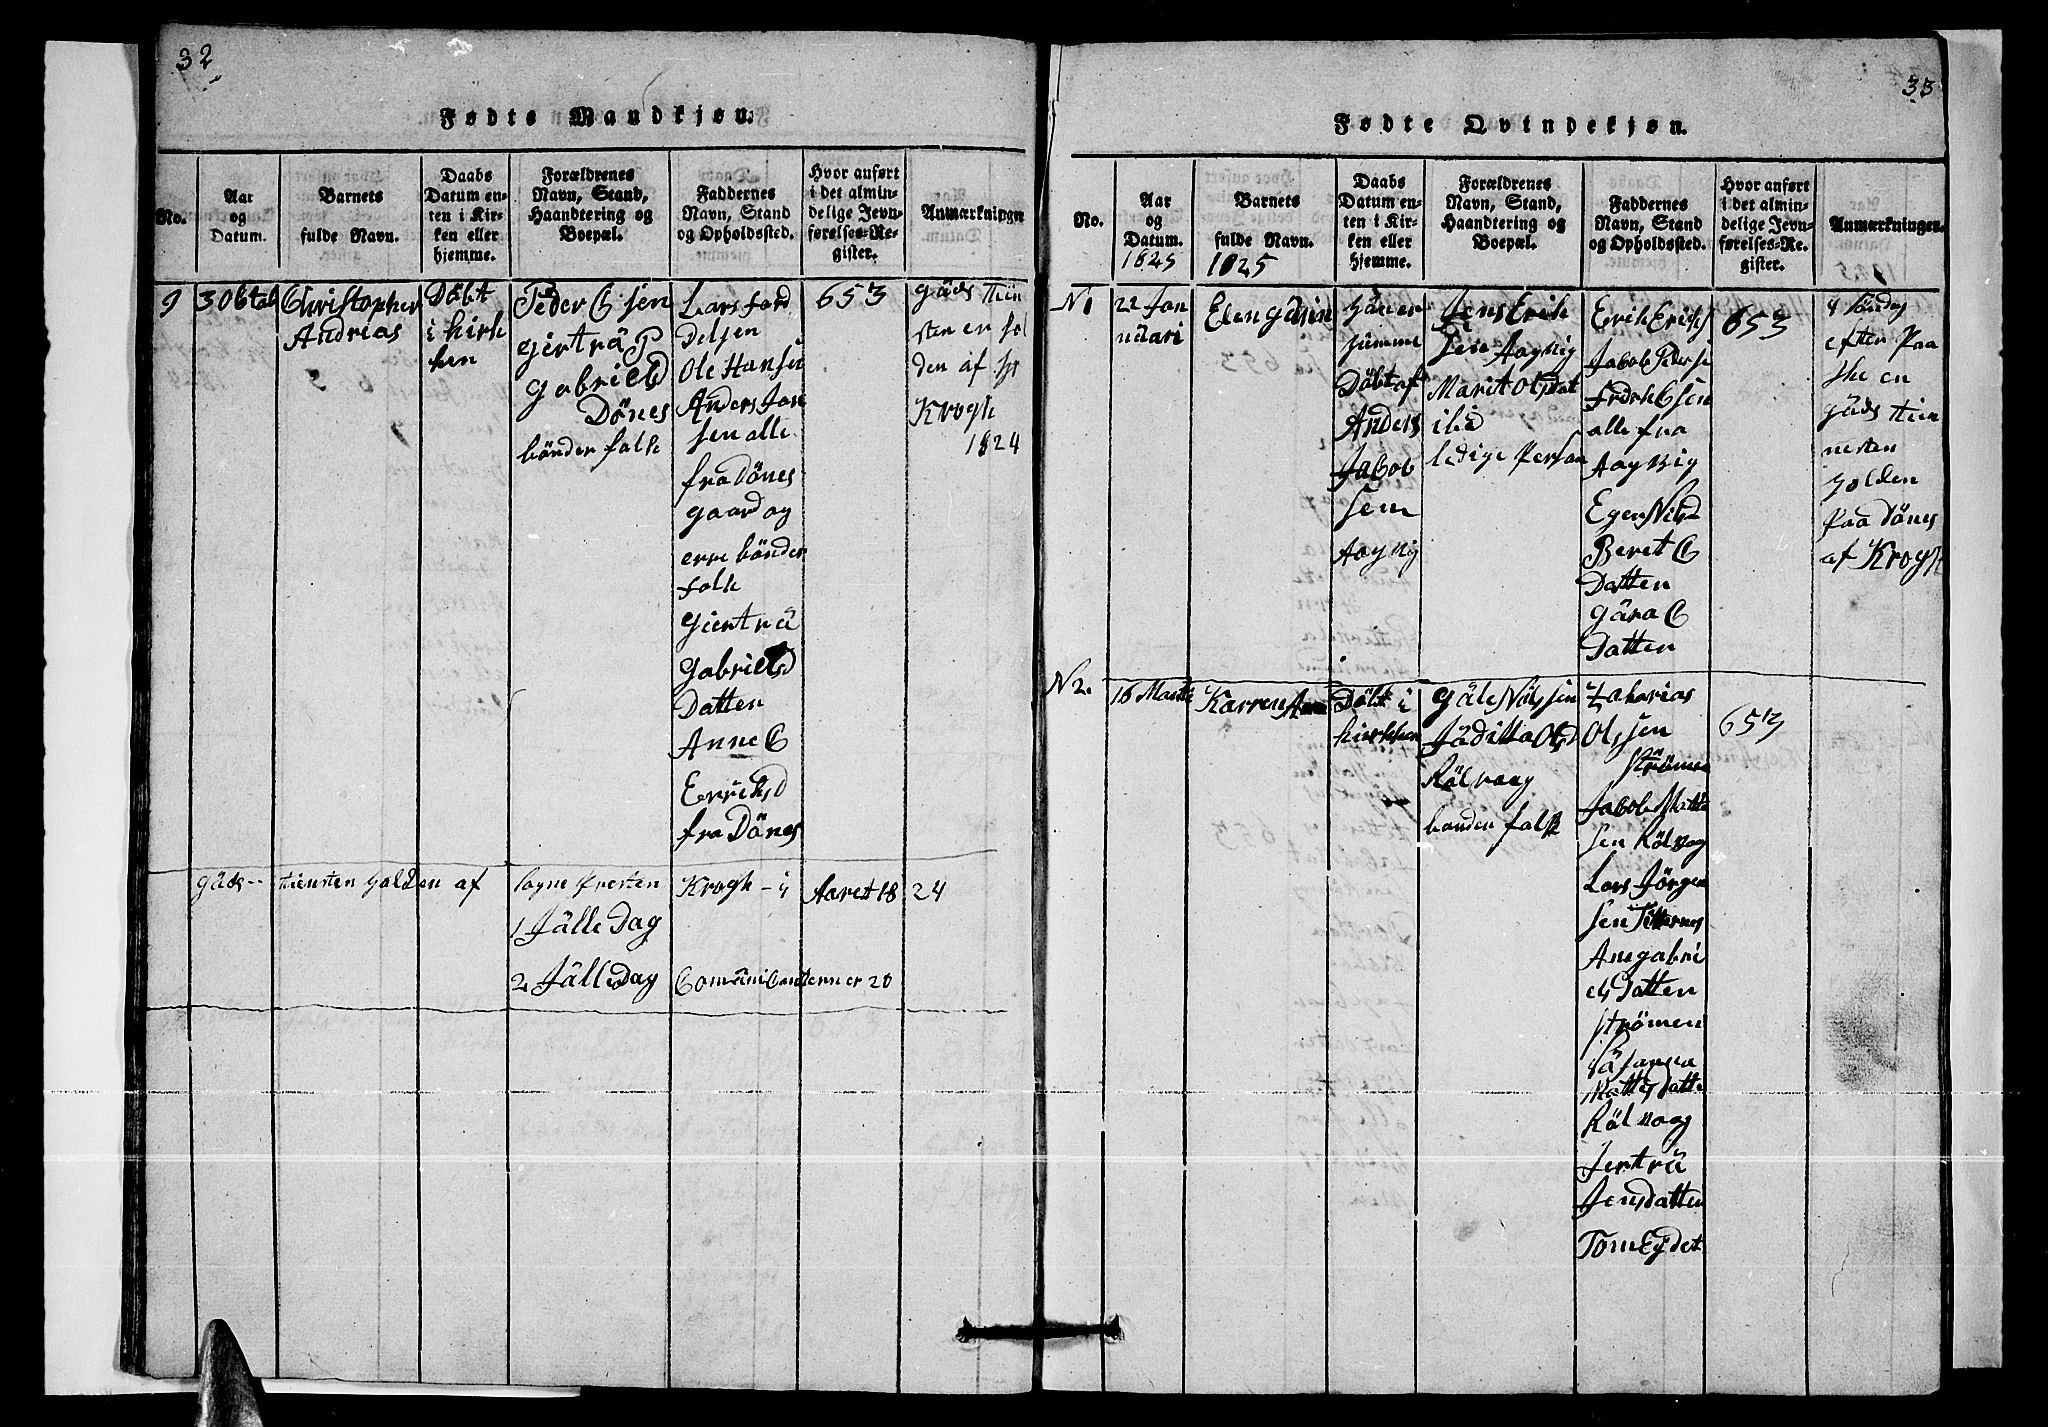 32
Fødte Mandkjøn.
No.
Aar
og
Datum.
Barnets
fulde Navn.
Daabs
Datum en-
ten i Kir-
ken eller
hjemme.
Forældrenes
Navn, Stand,
Haandtering og
Boepæl.
Faddernes
Navn, Stand
og Opholdssted.
Hvor anført
i det almin-
delige Jevn-
førelses-Re-
gister.
Anmærkninger
9
3 Obtob
Christopher
Andrias
Döbt
i kirk
ken
Peder C sen
giertrü P
gabrield
Dönes
bönder folk
Lars ford
Delsen
Ole Hansen
Anders Jon
sen alle
fra Dönes
gaard og
erre bönder
folk
giertrü
gabrielsd
Datten
Anne C
Erriksd
fra Dönes
653
güds thien
sten er hol
den af
Krogh
1824
güds--
thiensten holden af
Sogne presten
Krogh - i
Aaret 18
24
1 Jülle Dag
2 Jülle Dag
Comünicanterner 20
33
Fødte Qvindekjøn.
No.
Aar
og
Datum.
1825
Barnets
fulde Navn.
1825
Daabs
Datum en-
ten i Kir-
ken eller
hjemme.
Forældrenes
Navn, Stand,
Haandtering og
Boepæl.
Faddernes
Navn, Stand
og Opholdssted.
Hvor anført
i det almin-
delige Jevn-
førelses-Re-
gister.
Anmærkninger.
N 1
22 Jan
uari
hiemme
Döbt af
Anders
Jacob
sen
Aagvig
Jens Erik
sen Aagvig
Marit Olsdat
ibid
ledige Person
Erik Eriks
Jacob Peders
Fredrik C sen
alle fra
Aagvig
Egen Nilsd
Beret C
Datten
güra C
Datten
653
8 söndag
efter Paa
ske en
güds thien
nesten
holden
paa Dönes
af Krogh
N 2.
16 Marti
Karren Anna
Döbt i
kirkken
güle Nilssen
Jüditta Olsd
Rölvaag
bonder folk
Zakarias
Olssen
Strömen
Jacob Matti
sen Rölvaag
Lars Jörgen
sen Titternes
Ane gabri
els Datten
strömen
Süsanna
Mattis Datte
Rölvaag
Jertrü
Jensdatten
Tom Eidet
653